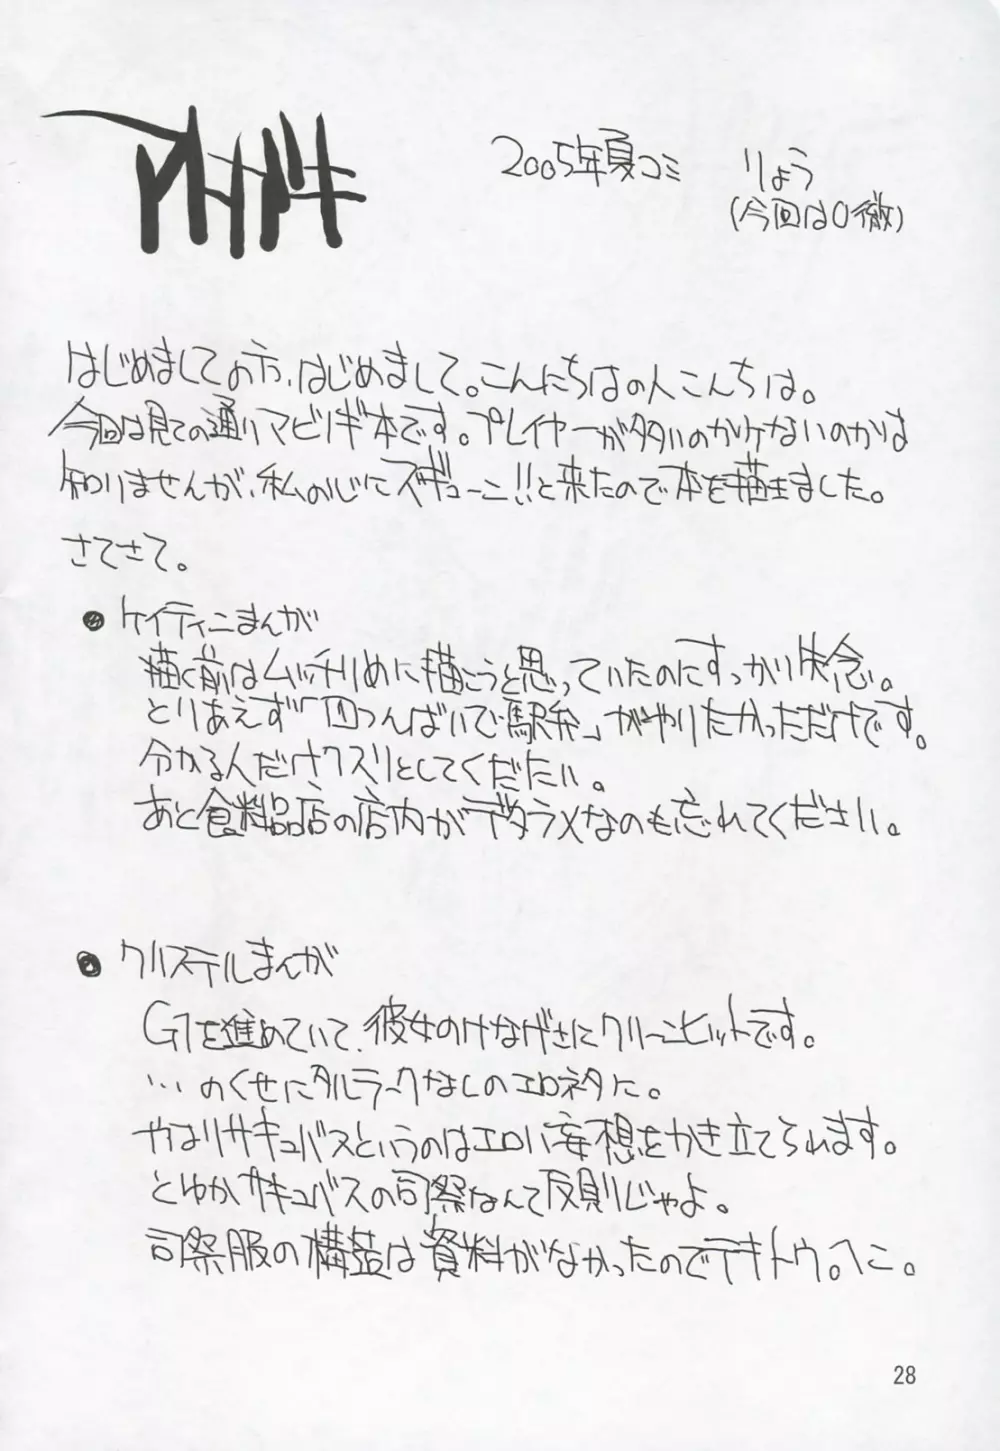 アトガキ
2005年夏コミ りょう
(今回は0徹)
はじめましての方、はじめまして。こんにちはの人こんちは。
今回は見ての通りマビノギ本です。プレイヤーが多いのか少ないのかは
知りませんが、私の心にズギューン!!と来たので本を描きました。
さてさて。
●ケイティンまんが
描く前はムッチリめに描こうと思っていたのにすっかり失念。
とりあえず「四つんばいで駅弁」がやりたかっただけです。
分かる人だけクスリとしてくだたい。
あと食料品店の店内がデタラメなのも忘れてください。
●クリステルまんが
G1を進めていて、彼女のけなげさにクリーンヒットです。
…のくせにタルラークなしのエロネタに。
やはりサキュバスというのはエロい妄想をかき立てられます。
とゆかサキュバスの司祭なんて反則じゃよ。
司祭服の構造は資料がなかったのでテキトウ。へこ。
28